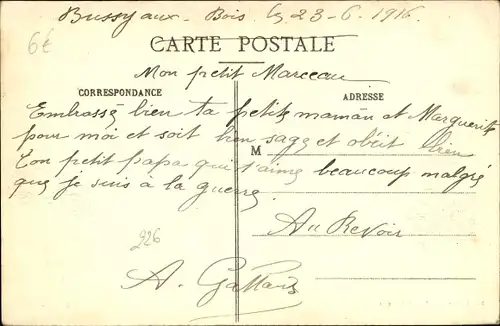 Bussy aux Bois le 23-6-1916
6€
CARTE POSTALE
Mon petit Marceau
CORRESPONDANCE
ADRESSE
Embrasse bien ta petite maman et Marguerite
pour moi et soit bien sage et obéit bien
M
Ton petit papa qui t'aime beaucoup malgré
que je suis a la guerre.
Au Revoir
226
A.